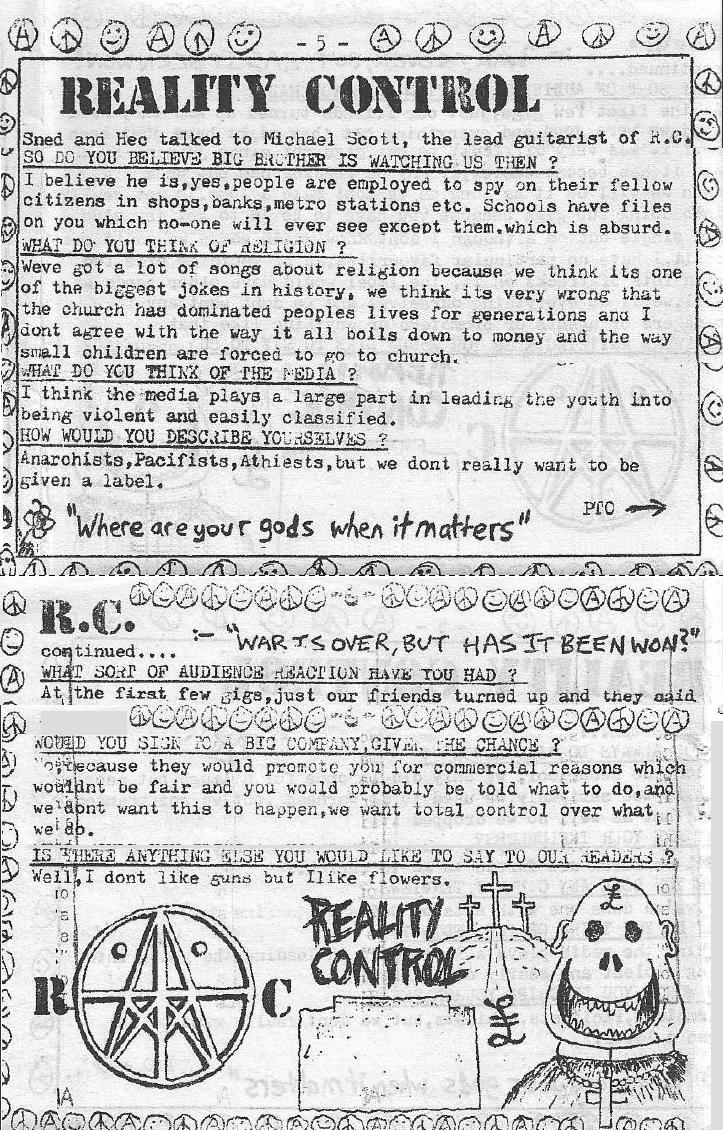 - 5 -
REALITY CONTROL
Sned and Hec talked to Michael Scott, the lead guitarist of R.C.
SO DO YOU BELIEVE BIG BROTHER IS WATCHING US THEN ?
I believe he is,yes,people are employed to spy on their fellow
citizens in shops,banks,metro stations etc. Schools have files
on you which no-one will ever see except them,which is absurd.
WHAT DO YOU THINK OF RELIGION ?
Weve got a lot of songs about religion because we think its one
of the biggest jokes in history, we think its very wrong that
the church has dominated peoples lives for generations and I
dont agree with the way it all boils down to money and the way
small children are forced to go to church.
WHAT DO YOU THINK OF THE MEDIA ?
I think the media plays a large part in leading the youth into
being violent and easily classified.
HOW WOULD YOU DESCRIBE YOURSELVES ?
Anarchists,Pacifists,Athiests,but we dont really want to be
given a label.
PTO
"Where are your gods when it matters"
-6-
R.C.
continued....
:- "WAR IS OVER, BUT HAS IT BEEN WON?"
WHAT SORT OF AUDIENCE REACTION HAVE YOU HAD ?
At the first few gigs,just our friends turned up and they said
-6-
WOULD YOU SIGN TO A BIG COMPANY,GIVEN THE CHANCE ?
No,because they would promote you for commercial reasons which
wouldnt be fair and you would probably be told what to do,and
we dont want this to happen,we want total control over what
we do.
IS THERE ANYTHING ELSE YOU WOULD LIKE TO SAY TO OUR READERS ?
Well,I dont like guns but Ilike flowers.
REALITY
CONTROL
£
R C